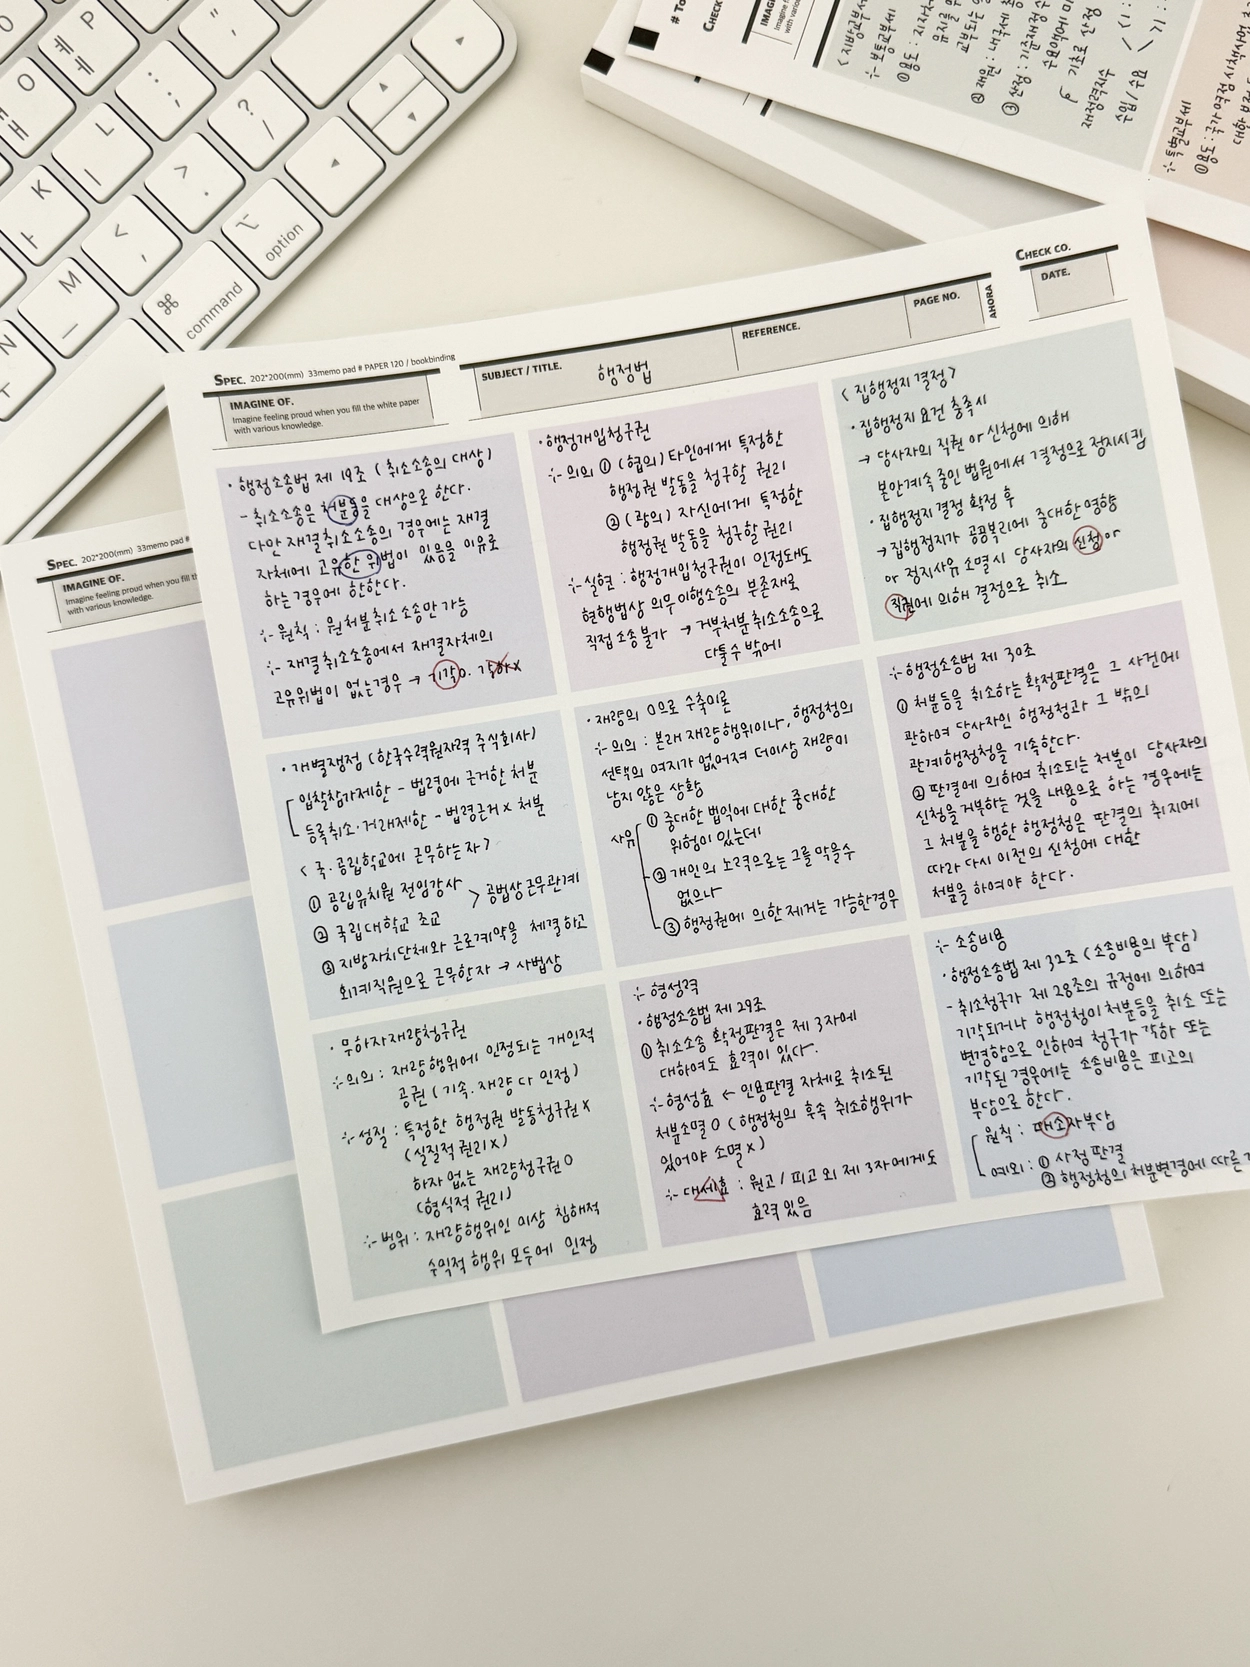 SPEC. 202*200(mm) 33memo pad # PAPER 120 / bookbinding
IMAGINE OF.
Imagine feeling proud when you fill the white paper
with various knowledge.
SUBJECT / TITLE.
행정법
REFERENCE.
PAGE NO.
AHORA
CHECK CO.
DATE.
· 행정소송법 제 19조 (취소소송의 대상)
- 취소소송은 처분등을 대상으로 한다.
다만 재결취소소송의 경우에는 재결
자체에 고유한 위법이 있음을 이유로
하는 경우에 한한다.
원칙 : 원처분취소소송만 가능
재결취소소송에서 재결자체의
고유위법이 없는경우 → 기각O. 각하X
· 행정개입청구권
의의 ① (협의) 타인에게 특정한
행정권 발동을 청구할 권리
② (광의) 자신에게 특정한
행정권 발동을 청구할 권리
실현 : 행정개입청구권이 인정돼도
현행법상 의무이행소송의 부존재로
직접 소송불가 → 거부처분취소소송으로
다툴수 밖에
< 집행정지 결정 >
· 집행정지 요건 충족시
→ 당사자의 직권 or 신청에 의해
본안계속 중인 법원에서 결정으로 정지시킴
· 집행정지 결정 확정 후
→ 집행정지가 공공복리에 중대한 영향
or 정지사유 소멸시 당사자의 신청 or
직권에 의해 결정으로 취소
· 개별쟁점 (한국수력원자력 주식회사)
입찰참가제한 - 법령에 근거한 처분
등록취소·거래제한 - 법령근거 X 처분
< 국.공립학교에 근무하는자 >
① 공립유치원 전임강사
② 국립대학교 조교
> 공법상 근무관계
③ 지방자치단체와 근로계약을 체결하고
회계직원으로 근무한자 → 사법상
· 재량의 0으로 수축이론
의의 : 본래 재량행위이나, 행정청의
선택의 여지가 없어져 더이상 재량이
남지 않은 상황
사유
① 중대한 법익에 대한 중대한
위험이 있는데
② 개인의 노력으로는 그를 막을수
없으나
③ 행정권에 의한 제거는 가능한경우
행정소송법 제 30조
① 처분등을 취소하는 확정판결은 그 사건에
관하여 당사자인 행정청과 그 밖의
관계행정청을 기속한다.
② 판결에 의하여 취소되는 처분이 당사자의
신청을 거부하는 것을 내용으로 하는 경우에는
그 처분을 행한 행정청은 판결의 취지에
따라 다시 이전의 신청에 대한
처분을 하여야 한다.
· 무하자재량청구권
의의 : 재량행위에 인정되는 개인적
공권 (기속.재량 다 인정)
성질 : 특정한 행정권 발동청구권 X
(실질적 권리X)
하자 없는 재량청구권 O
(형식적 권리)
범위 : 재량행위인 이상 침해적
수익적 행위 모두에 인정
형성력
· 행정소송법 제 29조
① 취소소송 확정판결은 제 3자에
대하여도 효력이 있다.
형성효 ← 인용판결 자체로 취소된
처분소멸 O (행정청의 후속 취소행위가
있어야 소멸 X)
대세효 : 원고 / 피고 외 제 3자에게도
효력 있음
소송비용
· 행정소송법 제 32조 (소송비용의 부담)
- 취소청구가 제 28조의 규정에 의하여
기각되거나 행정청이 처분등을 취소 또는
변경함으로 인하여 청구가 각하 또는
기각된 경우에는 소송비용은 피고의
부담으로 한다.
원칙 : 패소자부담
예외 : ① 사정판결
② 행정청의 처분변경에 따른
SPEC. 202*200(mm) 33memo pad #
IMAGINE OF.
Imagine feeling proud when you fill
with various knowledge.
CHECK
command
option